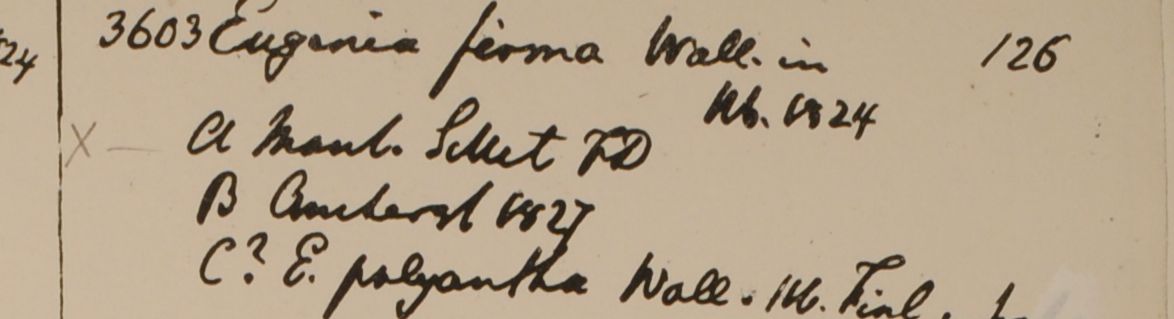 24
3603 Eugenia firma Wall. in 126
Hb. 1824
X — A Mont. Sillet FD
B Amherst 1827
C? E. polyantha Wall. Hb. Finl.